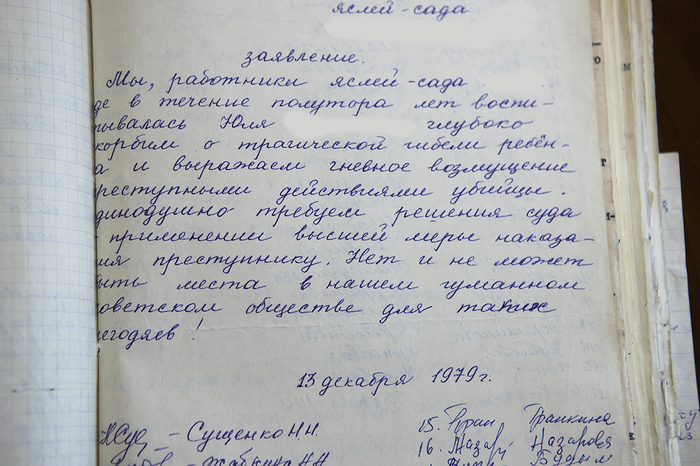 яслей-сада
заявление.
Мы, работники яслей-сада
де в течение полутора лет воспи-
тывалась Юля глубоко
корбим о трагической гибели ребён-
а и выражаем гневное возмущение
реступными действиями убийцы.
динодушно требуем решения суда
применении высшей меры наказа-
ия преступнику. Нет и не может
ыть места в нашем гуманном
оветском обществе для таких
егодяев!
13 декабря 1979 г.
– Сущенко Н.Н.
15. Транкина
16. Назар Назарова